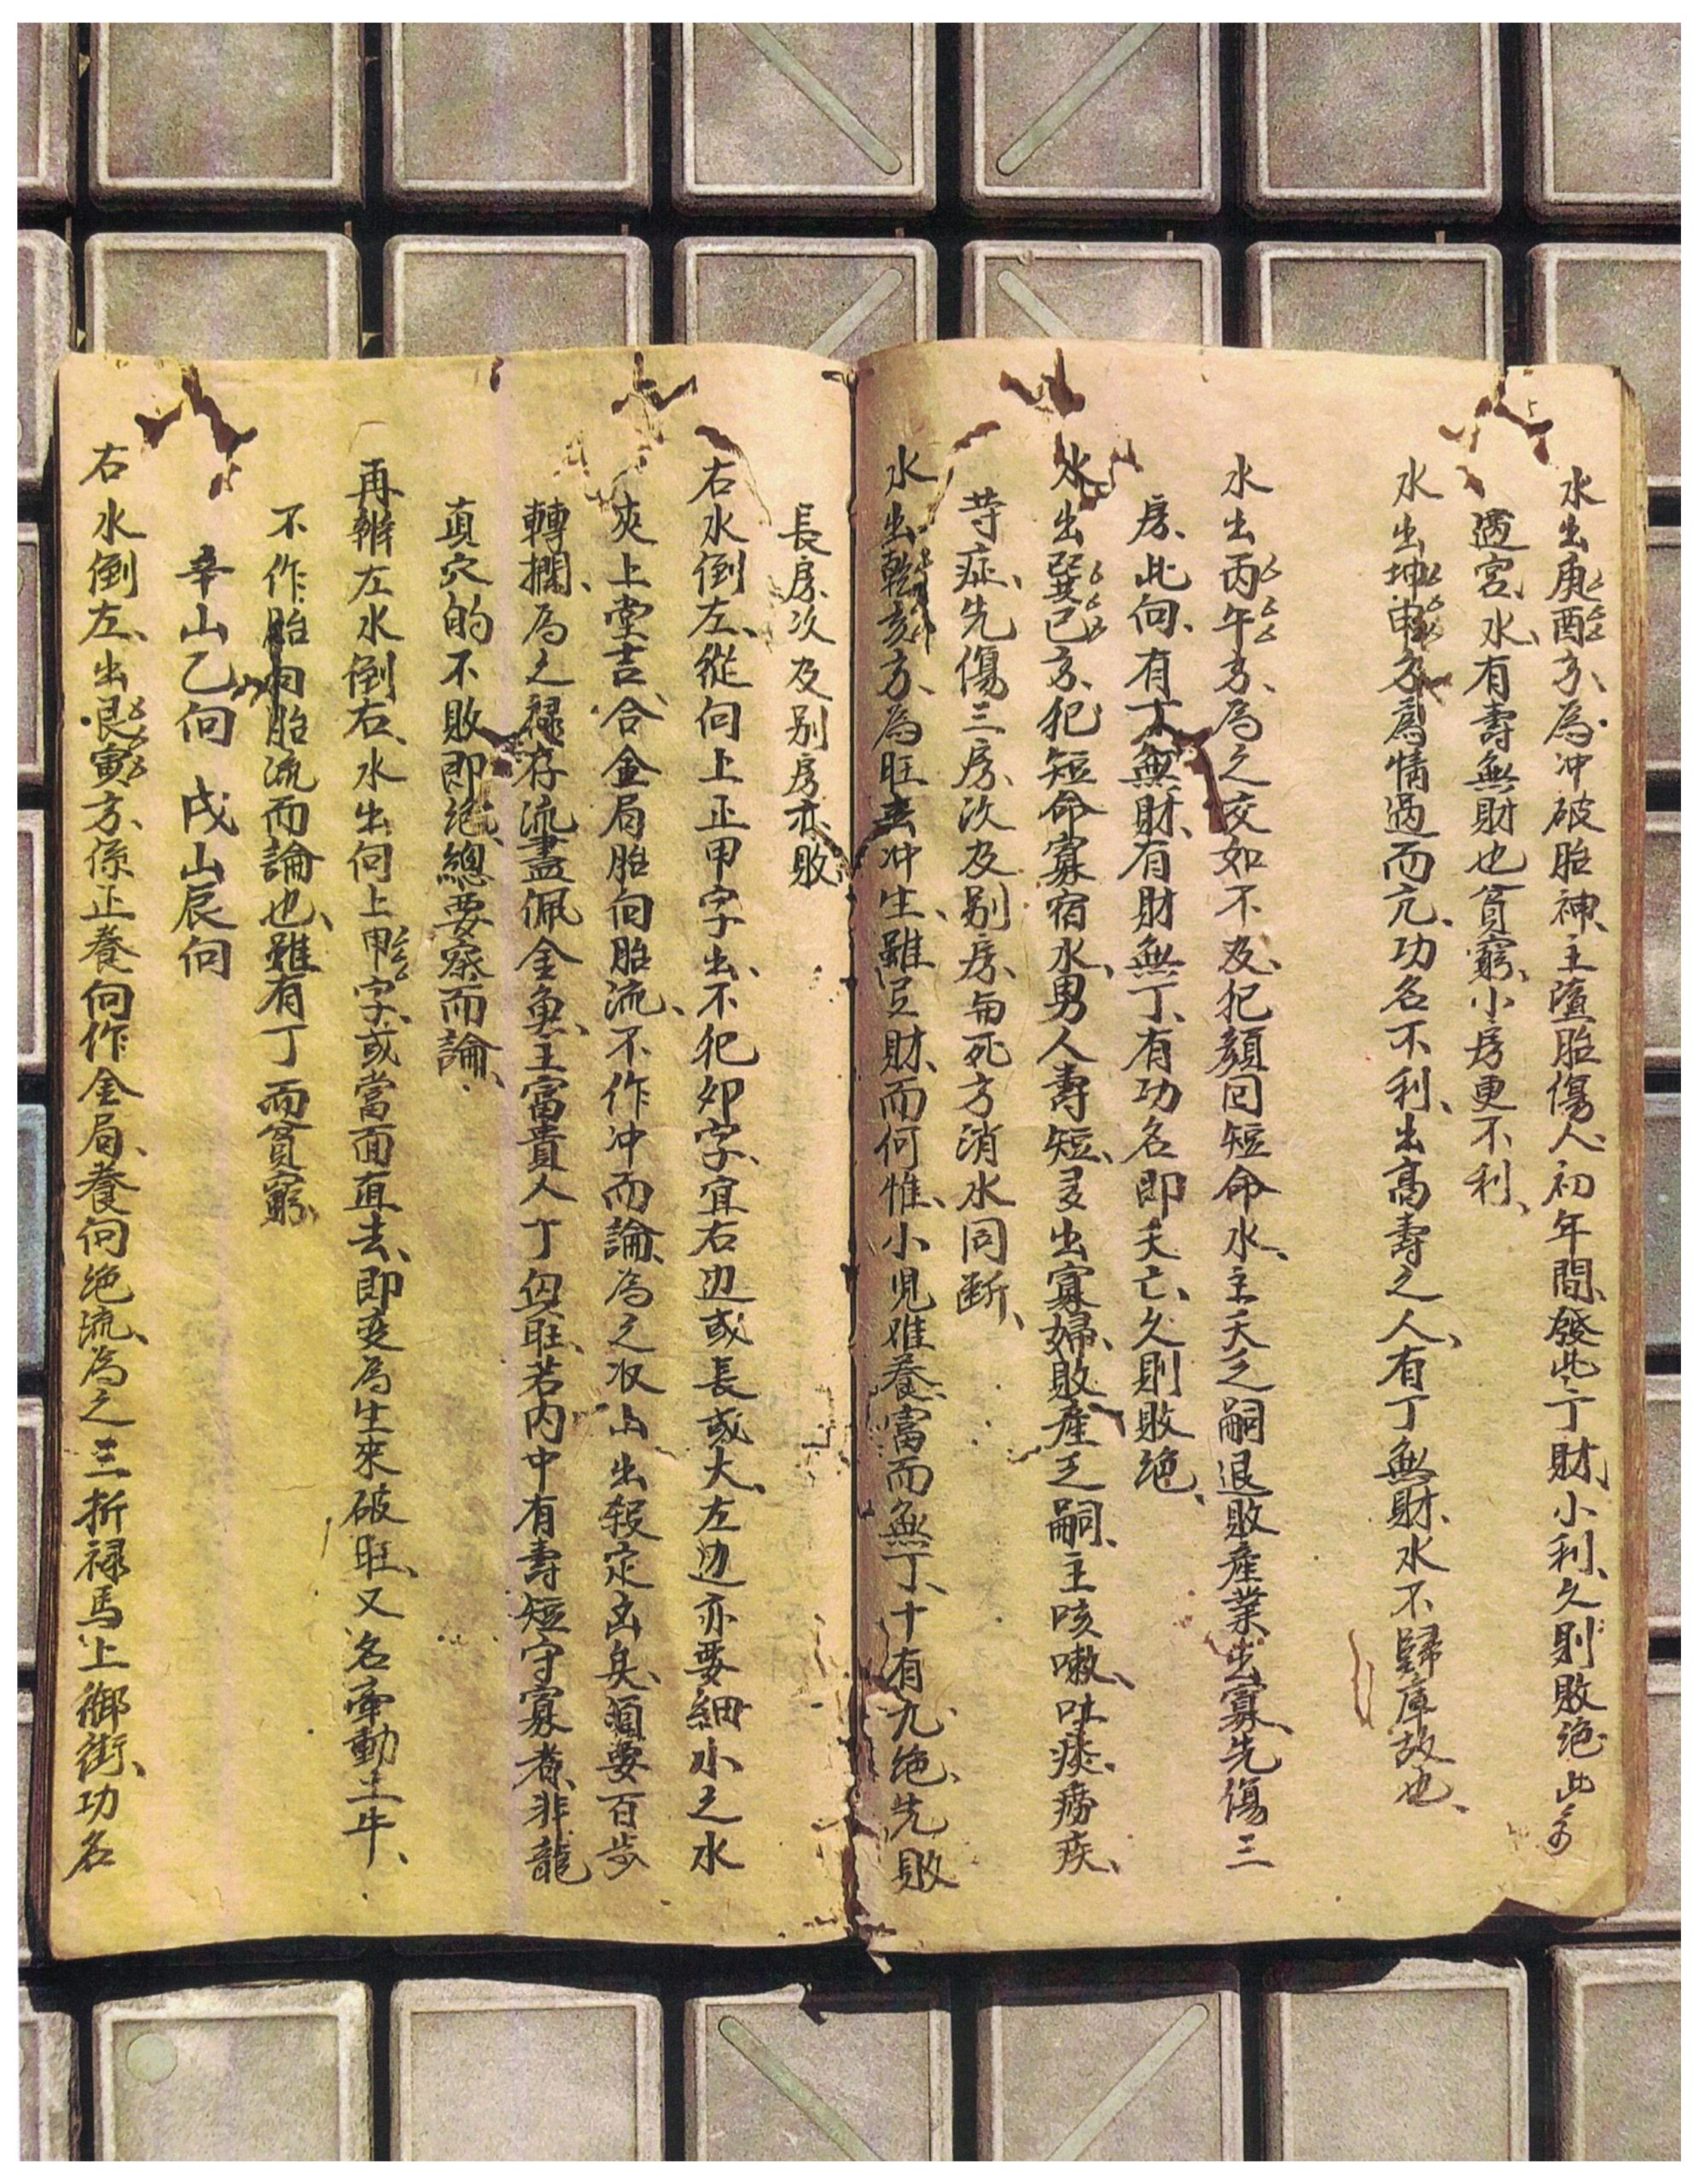 水出庚酉方、為冲破胎神、主墮胎傷人、初年間、發些丁財、小利、久則敗絶、此為
過宮、水、有壽無財也、貧窮、小房更不利、
水出坤申方、為情過而亢、功名不利、出高壽之人、有丁無財、水不歸庫故也、
水出丙午方、為之交如不及、犯顏回短命水、主夭乏嗣退敗產業出寡、先傷三
房、此向、有丁無財、有財無丁、有功名即夭亡、久則敗絶、
水出巽巳方、犯短命寡宿水、男人壽短、多出寡婦、敗產乏嗣、主咳嗽、吐痰、癆疾、
等症、先傷三房、次及别房、與死方消水同断、
水出乾亥方、為旺去冲生、雖多財、而何惟、小児难養、富而無丁、十有九絶、先敗
長房、次及别房亦敗
右水倒左、從向上正甲字出、不犯卯字、宜右边或長或大、左边亦要細小之水
夾上堂吉、合金局胎向胎流、不作冲而論、為之收山出殺定凶矣、須要百步
轉攔、為之禄存流盡佩金魚、主富貴人丁興旺、若内中有壽短守寡者、非龍
真穴的不敗即絶、總要察而論、
再辦左水倒右、水出向上甲字、或當面直去、即变為生來破旺、又名牽動土牛、
不作胎向胎流而論也、雖有丁而貧窮、
辛山乙向 戌山辰向
右水倒左、出艮寅方、係正養向作金局、養向绝流、為之三折禄馬上御街、功名